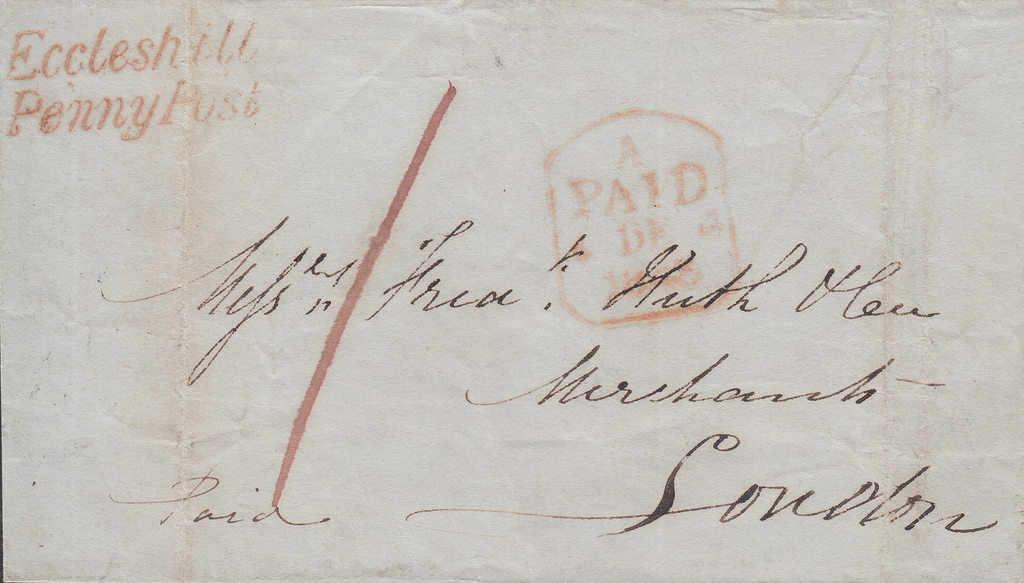 Eccleshill
Penny Post
A
PAID
DE
Messrs Fredk. Huth & Co
Merchants
London
Paid